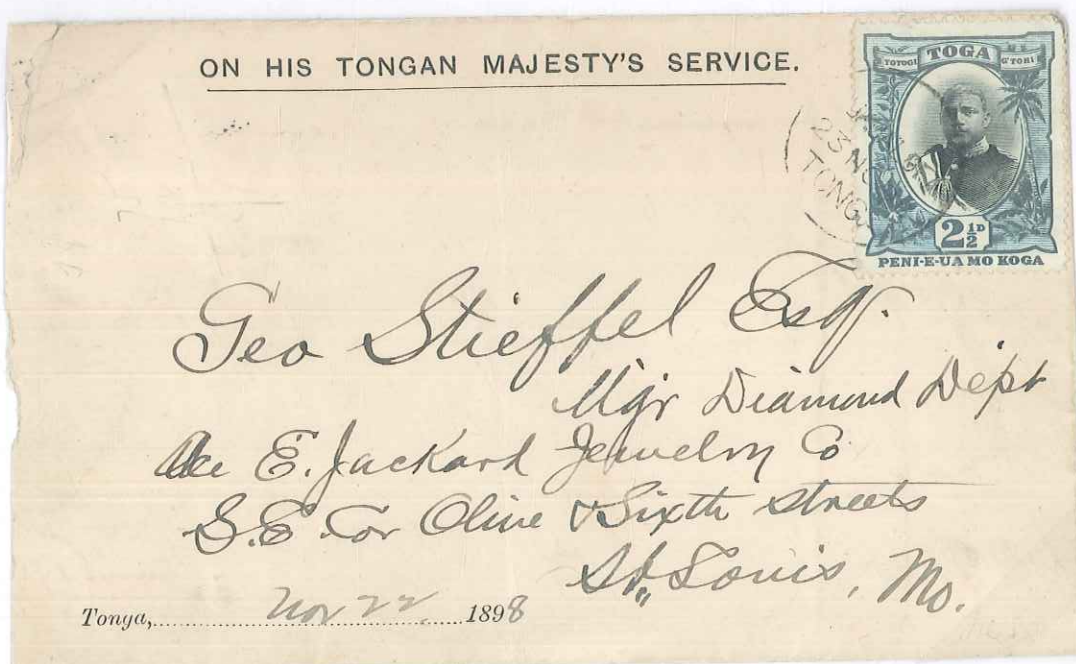 ON HIS TONGAN MAJESTY'S SERVICE.
TOGA
TOTOGI G'TOHI
2½D
PENI-E-UA MO KOGA
23 NO
TONGA
Geo Stieffel Esq.
Mgr Diamond Dept
E. Jackard Jewelry Co
S.E. Cor Olive & Sixth Streets
St. Louis, Mo.
Tonga, Nov 22 1898